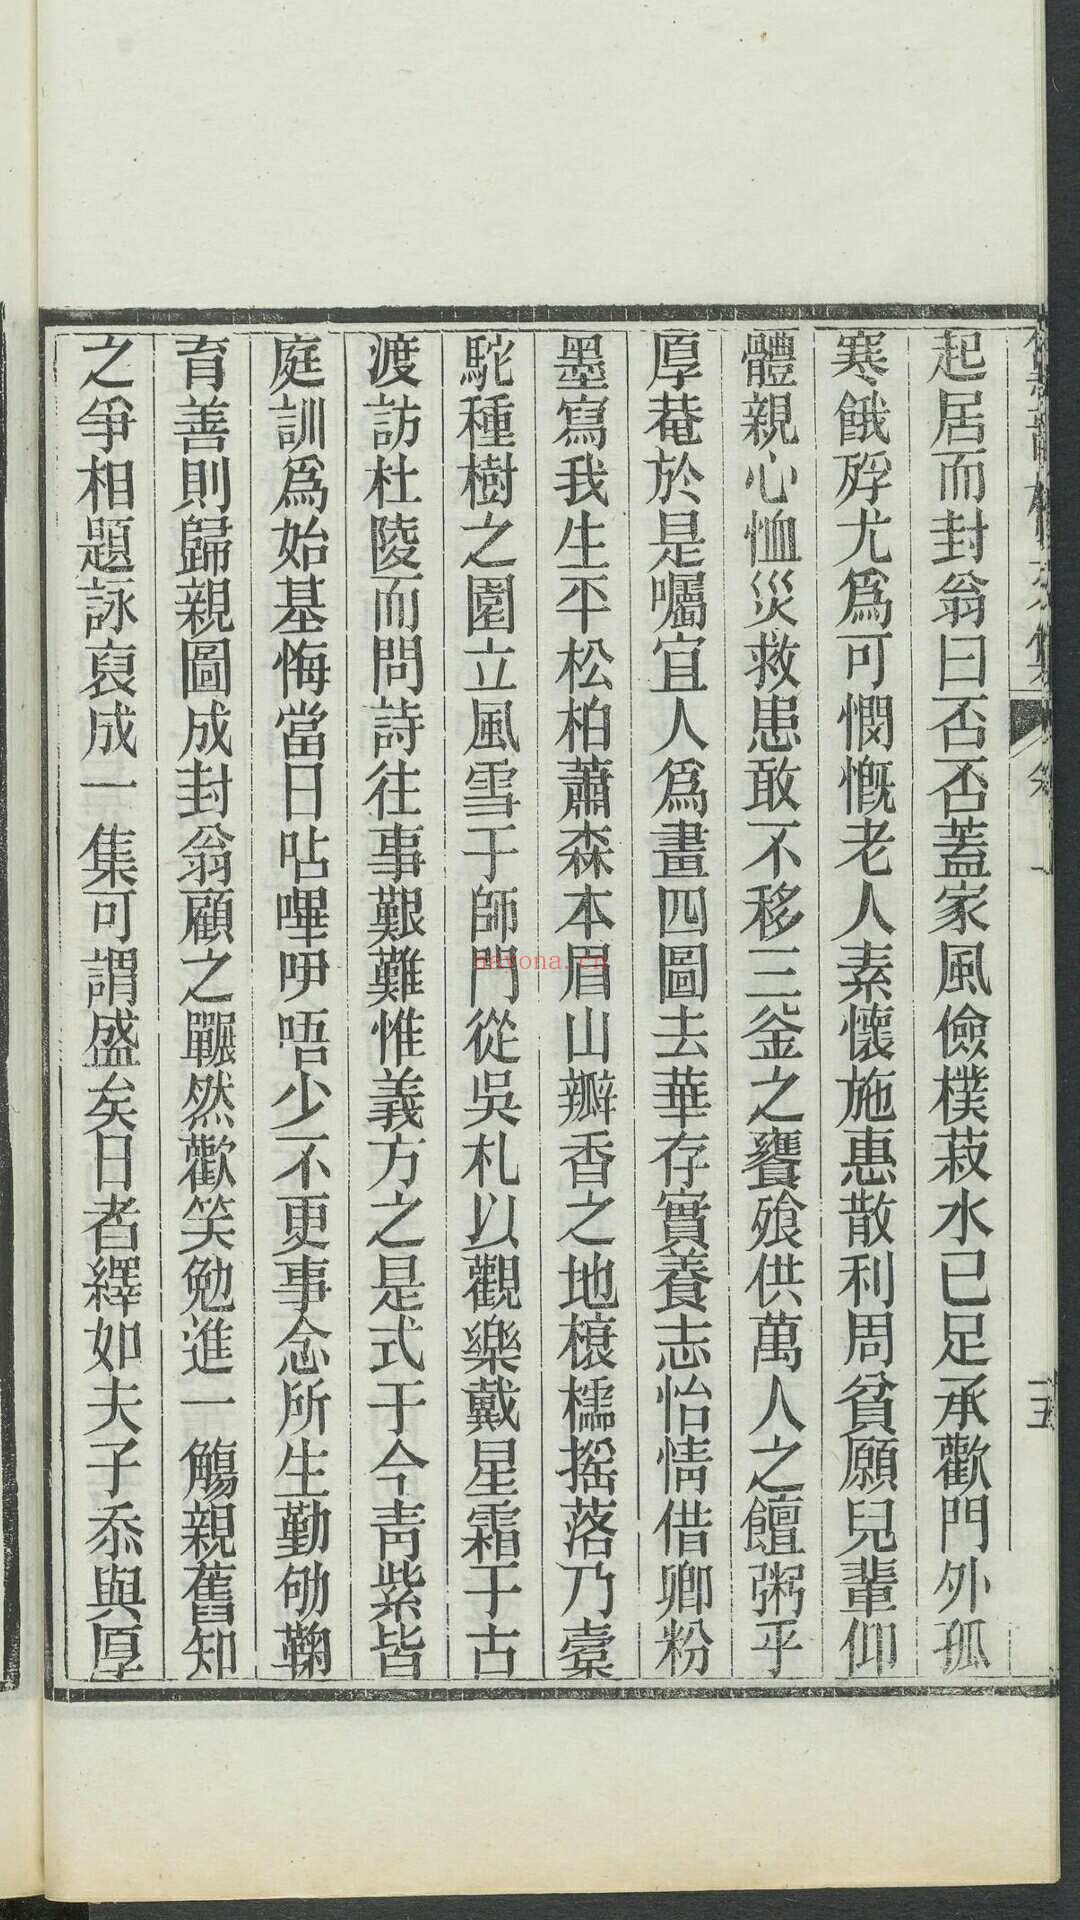 起居而封翁曰否否蓋家風儉樸菽水已足承歡門外孤
寒餓殍尤爲可憫慨老人素懷施惠散利周貧願兒輩仰
體親心恤災救患敢不移三釜之饔飱供萬人之饘粥乎
厚菴於是囑宜人爲畫四圖去華存實養志怡情借卿粉
墨寫我生平松柏蕭森本眉山瓣香之地榱櫺搖落乃橐
駝種樹之園立風雪于師門從吳札以觀樂戴星霜于古
渡訪杜陵而問詩往事艱難惟義方之是式于今青紫皆
庭訓爲始基悔當日呫嗶吚唔少不更事念所生勤劬鞠
育善則歸親圖成封翁顧之囅然歡笑勉進一觴親舊知
之爭相題詠裒成一集可謂盛矣日者繹如夫子忝與厚
卷一
十五
hayona.cn